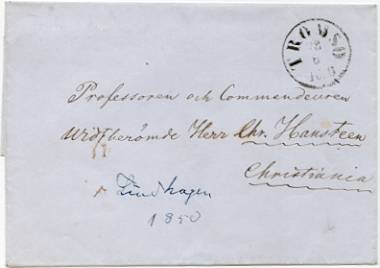 TROMSÖ
6
Professoren och Commendeuren
Widtberömde Herr Chr. Hansteen
Christiania
Lindhagen
1850